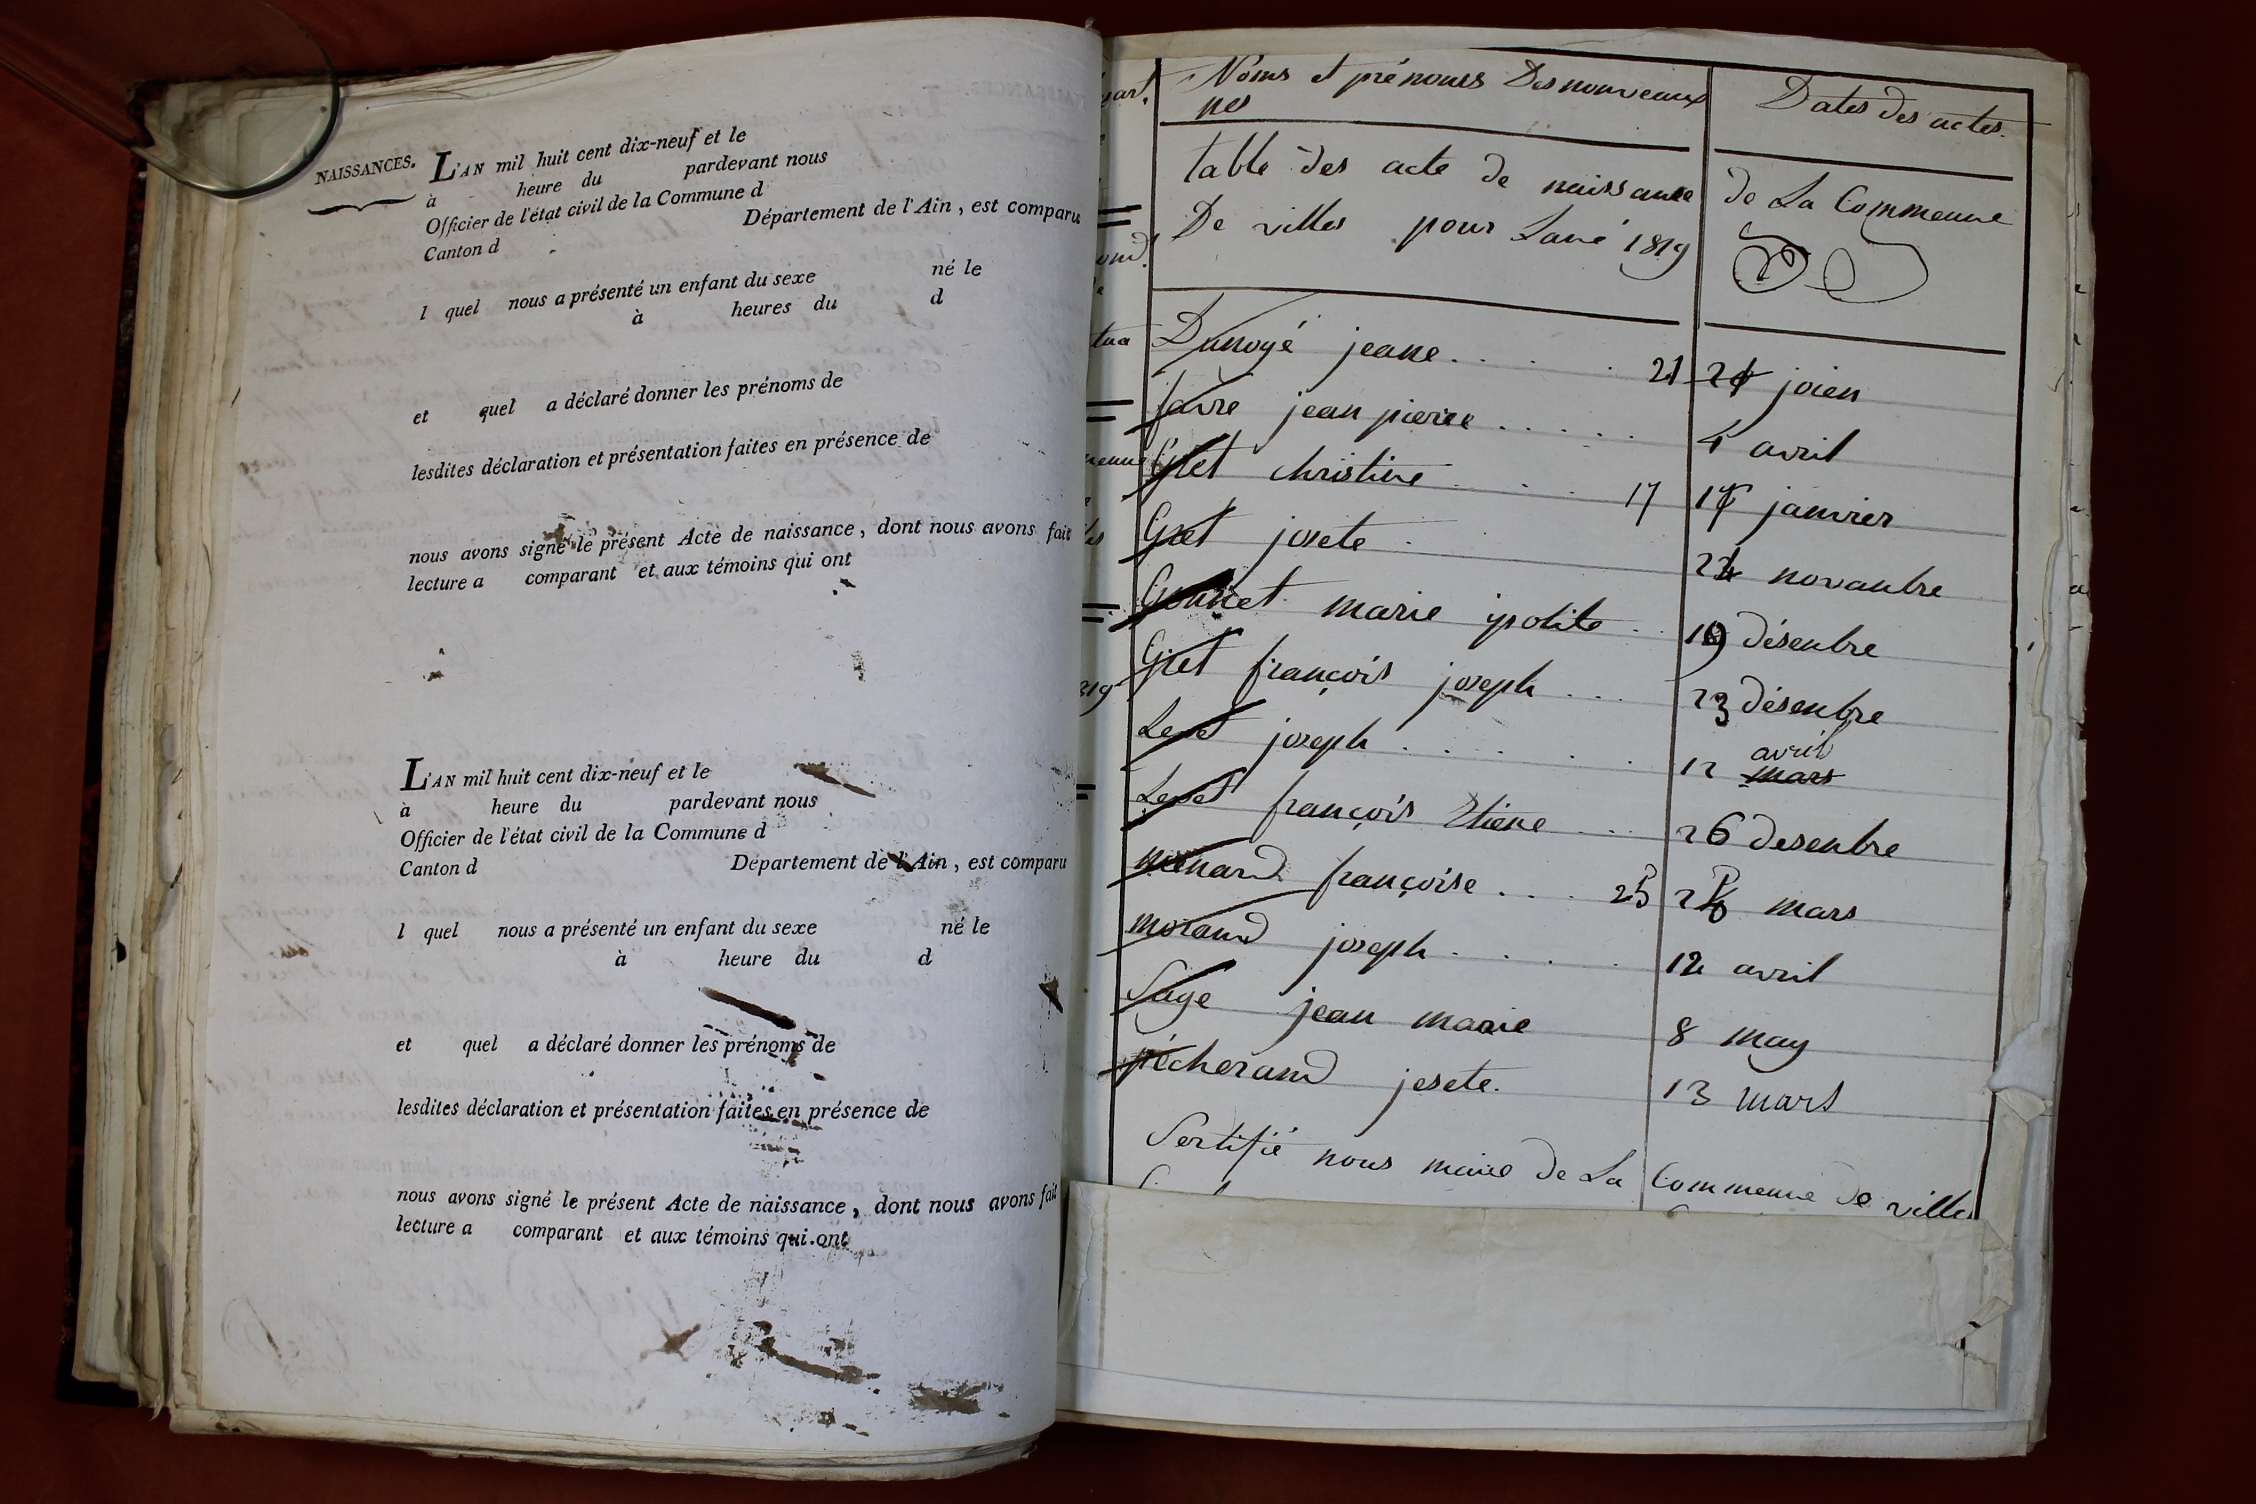 NAISSANCES.
L'AN mil huit cent dix-neuf et le
à heure du pardevant nous
Officier de l'état civil de la Commune d
Canton d Département de l'Ain, est comparu
l quel nous a présenté un enfant du sexe né le
à heures du d
et quel a déclaré donner les prénoms de
lesdites déclaration et présentation faites en présence de
nous avons signé le présent Acte de naissance, dont nous avons fait
lecture a comparant et aux témoins qui ont
L'AN mil huit cent dix-neuf et le
à heure du pardevant nous
Officier de l'état civil de la Commune d
Canton d Département de l'Ain, est comparu
l quel nous a présenté un enfant du sexe né le
à heure du d
et quel a déclaré donner les prénoms de
lesdites déclaration et présentation faites en présence de
nous avons signé le présent Acte de naissance, dont nous avons fait
lecture a comparant et aux témoins qui ont
Noms et prénoms Des nouveaux Dates des actes.
nes
table des acte de naissance de La Commeune
De villes pour Lané 1819
Dunoyé jeane . . . . 21 21 joien
favre jean pierre . . . . . 4 avril
Gret christine . . . 17 17 janvier
Gret josete 24 novanbre
Gonnet marie ypolite . . 19 désenbre
Gret françois joseph . . . 23 désenbre
avril
Lepet joseph . . . . . 12 mars
Lepet françois Etiene . . . 26 desenbre
menard françoise . . . 25 25 mars
morand joseph . . . . 12 avril
Sage jean marie 8 may
pécherand josete. 13 mars
Sertifié nous maire de La Commeune de villes